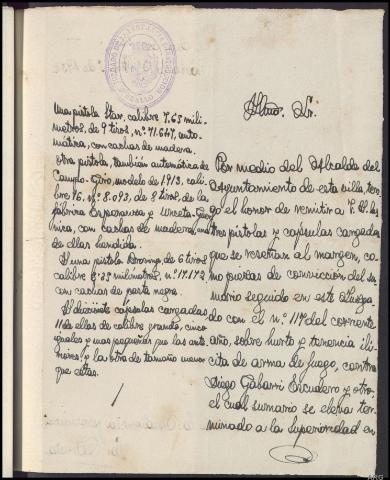 JUZGADO DE INSTRUCCION
CARBALLO
Una pistola Star, calibre 7.65 mili-
metros, de 9 tiros, nº 71.647, auto-
mática, con cachas de madera.
Otra pistola, también automática de
Campo-Giro, modelo de 1913, cali-
bre 76, nº 8.093, de 8 tiros, de la
fábrica Esperanza y Unceta-Guer
nica, con cachas de madera, una
de ellas hendida.
Y una pistola Browng, de 6 tiros
calibre 6.35 milímetros, nº 17.172
con cachas de pasta negra.
Y diecisiete cápsulas cargadas
11 de ellas de calibre grande, cinco
iguales y mas pequeñas que las ante
riores, y la otra de tamaño menor
que estas.
Iltmo. Sr.
Por medio del Alcalde del
Ayuntamiento de esta villa, ten
go el honor de remitir a V.I. las
tres pistolas y cápsulas cargadas
que se reseñan al margen, co
mo piezas de convicción del su
mario seguido en este Juzga
do con el nº 117 del corriente
año, sobre hurto y tenencia ilí
cita de arma de fuego, contra
Diego Gabarri Escudero y otro,
el cual sumario se eleva ter-
minado a la Superioridad en